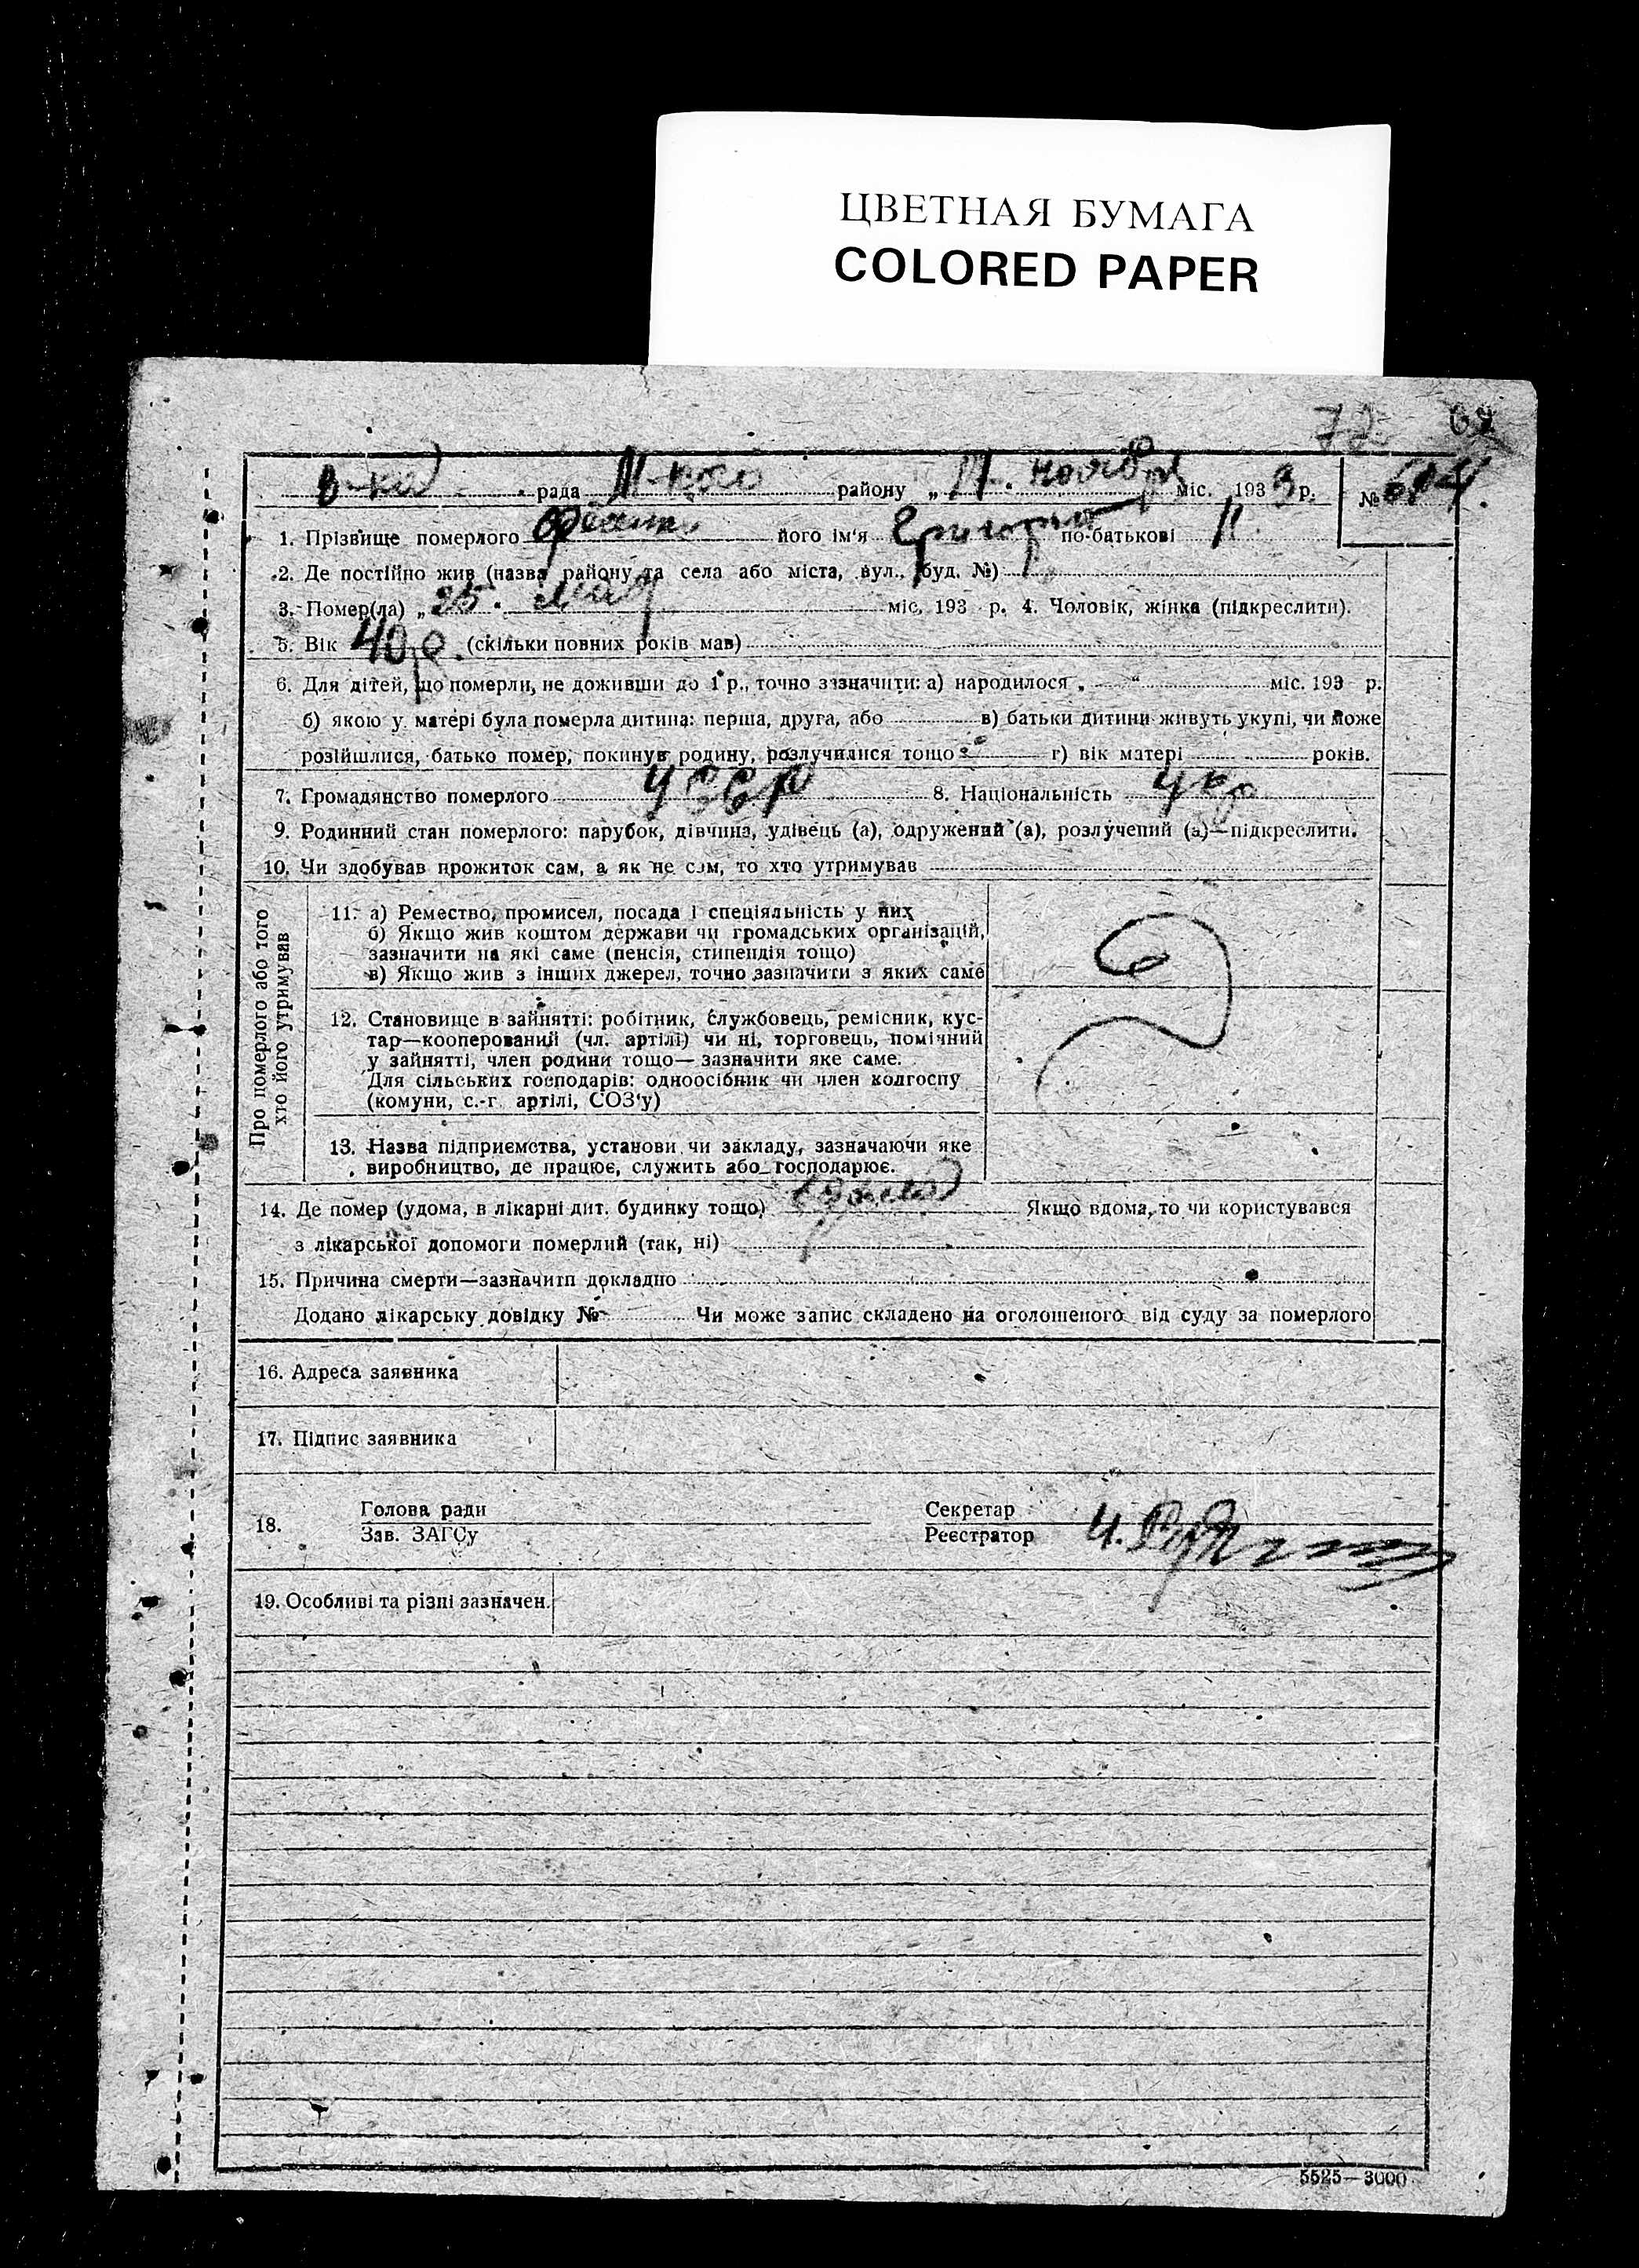 ЦВЕТНАЯ БУМАГА
COLORED PAPER
72
рада району „ 17. ноября міс. 1933 р. №
1. Прізвище померлого його ім'я Григорий по-батькові
2. Де постійно жив (назва району та села або міста, вул., буд. №)
3. Помер(ла) „ 25. мая міс. 193 р. 4. Чоловік, жінка (підкреслити).
5. Вік 40 р. (скільки повних років мав)
6. Для дітей, що померли, не доживши до 1 р., точно зазначити: а) народилося „ “ міс. 193 р.
б) якою у матері була померла дитина: перша, друга, або в) батьки дитини живуть укупі, чи може
розійшлися, батько помер, покинув родину, розлучилися тощо г) вік матері років.
7. Громадянство померлого УССР 8. Національність укр
9. Родинний стан померлого: парубок, дівчина, удівець (а), одружений (а), розлучений (а)—підкреслити.
10. Чи здобував прожиток сам, а як не сам, то хто утримував
Про померлого або того
хто його утримував
11. а) Ремество, промисел, посада і спеціяльність у них
б) Якщо жив коштом держави чи громадських організацій,
зазначити на які саме (пенсія, стипендія тощо)
в) Якщо жив з інших джерел, точно зазначити з яких саме
12. Становище в зайнятті: робітник, службовець, ремісник, кус-
тар—кооперований (чл. артілі) чи ні, торговець, помічний
у зайнятті, член родини тощо—зазначити яке саме.
Для сільських господарів: одноосібник чи член колгоспу
(комуни, с.-г. артілі, СОЗ'у)
13. Назва підприємства, установи чи закладу, зазначаючи яке
виробництво, де працює, служить або господарює.
14. Де помер (удома, в лікарні дит. будинку тощо) Якщо вдома, то чи користувався
з лікарської допомоги померлий (так, ні)
15. Причина смерти—зазначити докладно
Додано лікарську довідку № Чи може запис складено на оголошеного від суду за померлого
16. Адреса заявника
17. Підпис заявника
18. Голова ради Секретар
Зав. ЗАГСу Реєстратор
19. Особливі та різні зазначен.
5525—3000